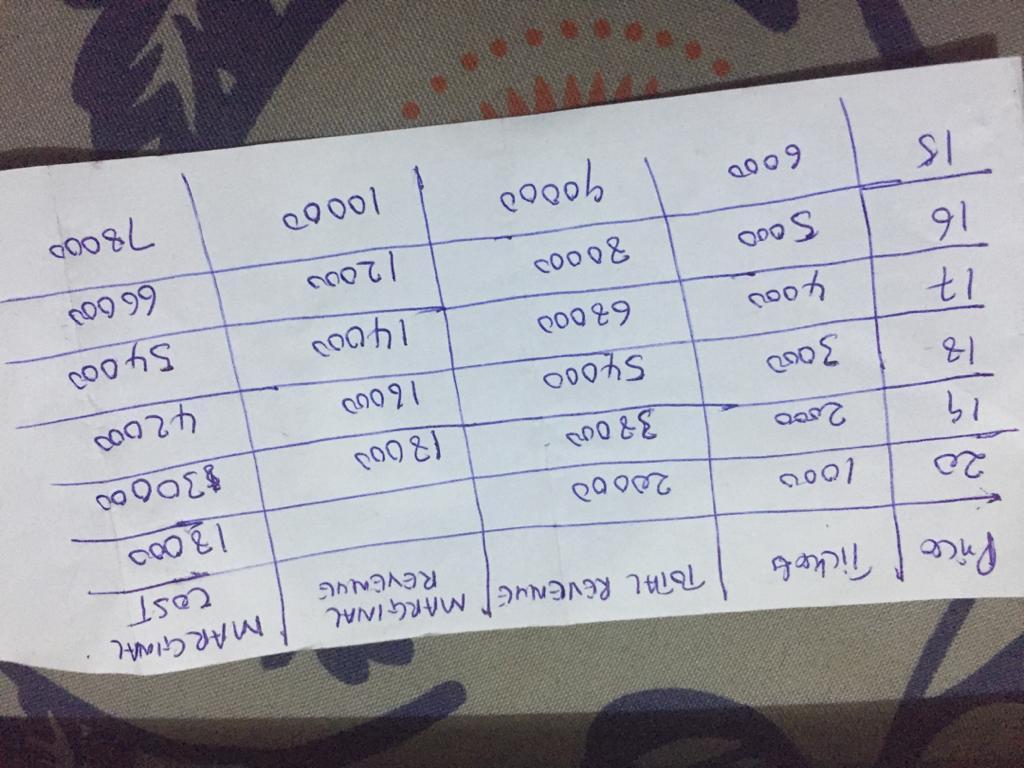 Price Tickets TOTAL REVENUE MARGINAL REVENUE MARGINAL COST
20 1000 20000 18000
19 2000 38000 18000 30000
18 3000 54000 16000 42000
17 4000 68000 14000 54000
16 5000 80000 12000 66000
15 6000 90000 10000 78000